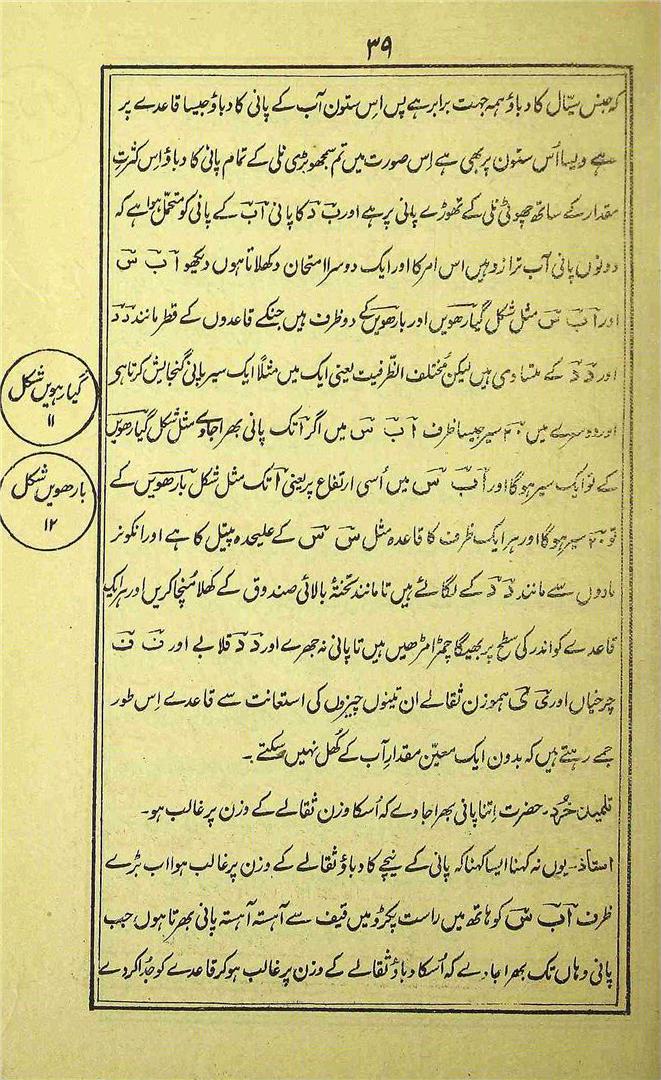 ۳۹
کہ جنس سیّال کا دباؤ ہمہ جہت برابر ہے پس اِس ستون آب کے پانی کا دباؤ جیسا قاعدے پر
ہے ویسا اُس ستون پر بھی ہے اِس صورت میں تم سمجھو بڑی نلی کے تمام پانی کا دباؤ اِس کثرتِ
مقدار کے ساتھ چھوٹی نلی کے تھوڑے پانی پر ہے اور بَ دَ کا پانی آبَ کے پانی کو متحمل ہوا ہے کہ
دونوں پانی آب ترازو ہیں اس امر کا اور ایک دوسرا امتحان دکھلاتا ہوں دیکھو آ بَ سَ
اور آ بَ سَ مثل شکل گیارھویں اور بارھویں کے دو ظرف ہیں جنکے قاعدوں کے قطر مانند دَ دَ
اور دَ دَ کے متساوی ہیں لیکن مختلف الظّرفیت یعنی ایک میں مثلاً ایک سیر پانی گنجایش کرتا ہی
اور دوسرے میں ۲۰ سیر جیسا ظرف آ بَ سَ میں اگر آ تک پانی بھرا جاوے مثل شکل گیارھویں
کے تو ایک سیر ہوگا اور آ بَ سَ میں اُسی ارتفاع پر یعنی آ تک مثل شکل بارھویں کے
تو ۲۰ سیر ہوگا اور ہر ایک ظرف کا قاعدہ مثل سَ سَ کے علیحدہ پیتل کا ہے اور انکو نر
مادوں سے مانند دَ دَ کے لگائے ہیں تا مانند تختۂ بالائی صندوق کے کھلا مُنچا کریں اور ہر ایک
قاعدے کو اندر کی سطح پر بھیگا چمڑا مڑھیں ہیں تا پانی نہ جھرے اور دَ دَ قلابے اور فَ فَ
چرخیاں اور یَ یَ ہموزن ثقالے ان تینوں چیزوں کی استعانت سے قاعدے اِس طور
جمے رہتے ہیں کہ بدون ایک معیّن مقدارِ آب کے کُھل نہیں سکتے ۔
تلمیذ خُرد ۔ حضرت اِتنا پانی بھرا جاوے کہ اُسکا وزن ثقالے کے وزن پر غالب ہو ۔
استاذ ۔ یوں نہ کہنا ایسا کہنا کہ پانی کے نیچے کا دباؤ ثقالے کے وزن پر غالب ہوا اب بڑے
ظرف آ بَ سَ کو ہاتھ میں راست پکڑو میں قیف سے آہستہ آہستہ پانی بھرتا ہوں جب
پانی وہاں تک بھرا جاوے کہ اُسکا دباؤ ثقالے کے وزن پر غالب ہو کر قاعدے کو جُدا کر دے
گیارہویں شکل
۱۱
بارھویں شکل
۱۲